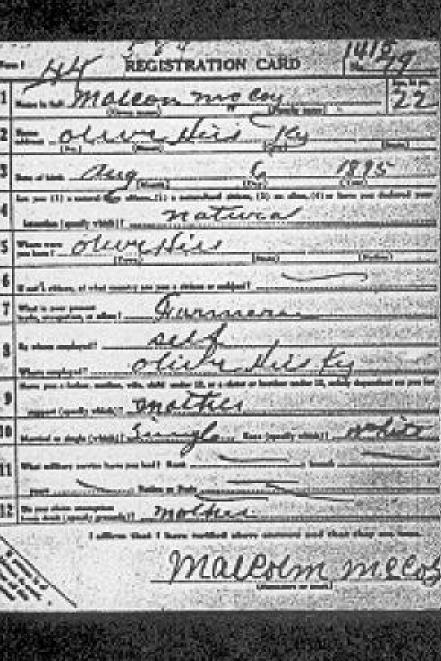 584
Form 1 44 REGISTRATION CARD No. 79
1 Name in full Malcon McCoy 22
(Given name) (Family name)
2 Home address Olive Hill Ky
(No.) (Street) (City) (State)
3 Date of birth Aug 6 1895
(Month) (Day) (Year)
4 Are you (1) a natural-born citizen, (2) a naturalized citizen, (3) an alien, (4) or have you declared your
intention (specify which)? natural
5 Where were you born? Olive Hill
(Town) (State) (Nation)
6 If not a citizen, of what country are you a citizen or subject?
7 What is your present trade, occupation, or office? Farmer
8 By whom employed? self
Where employed? Olive Hill Ky
9 Have you a father, mother, wife, child under 12, or a sister or brother under 12, solely dependent on you for
support (specify which)? mother
10 Married or single (which)? Single Race (specify which)? White
11 What military service have you had? Rank branch
years Nation or State
12 Do you claim exemption from draft (specify grounds)? mother
I affirm that I have verified above answers and that they are true.
Malcolm McCoy
(Signature or mark)